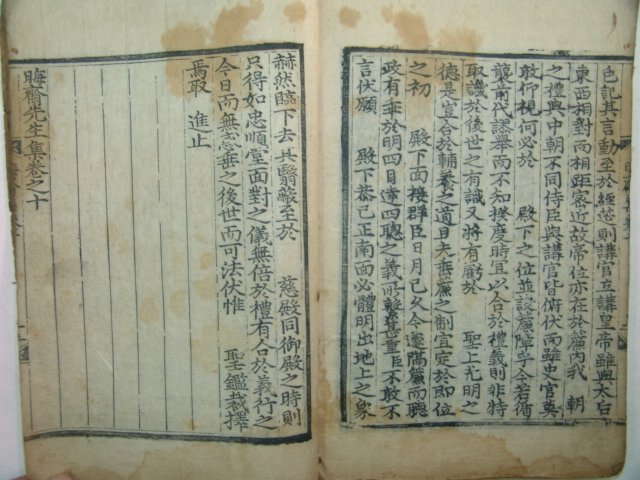 色記其言動至於經筵則講官立講皇帝雖與太后
東西相對而相距密近故帝位亦在於簾內我 朝
之禮與中朝不同侍臣與講官皆俯伏而雖史官莫
敢仰視何必於 殿下之位並設簾障乎今若循
襲前代謬擧而不知揆度時宜以合於禮義則非特
取譏於後世之有識又將有虧於 聖上光明之
德是豈合於輔養之道且夫垂簾之制宜定於即位
之初 殿下面接群臣日月已久今遽隔簾而聽
政有乖於明四目達四聰之義所繫甚重臣不敢不
言伏願 殿下恭己正南面必體明出地上之象
赫然臨下去其翳蔽至於 慈殿同御殿之時則
只得如忠順堂面對之儀無倍於禮有合於義行之
今日而無忝垂之後世而可法伏惟 聖鑑裁擇
焉取 進止
晦齋先生集卷之十